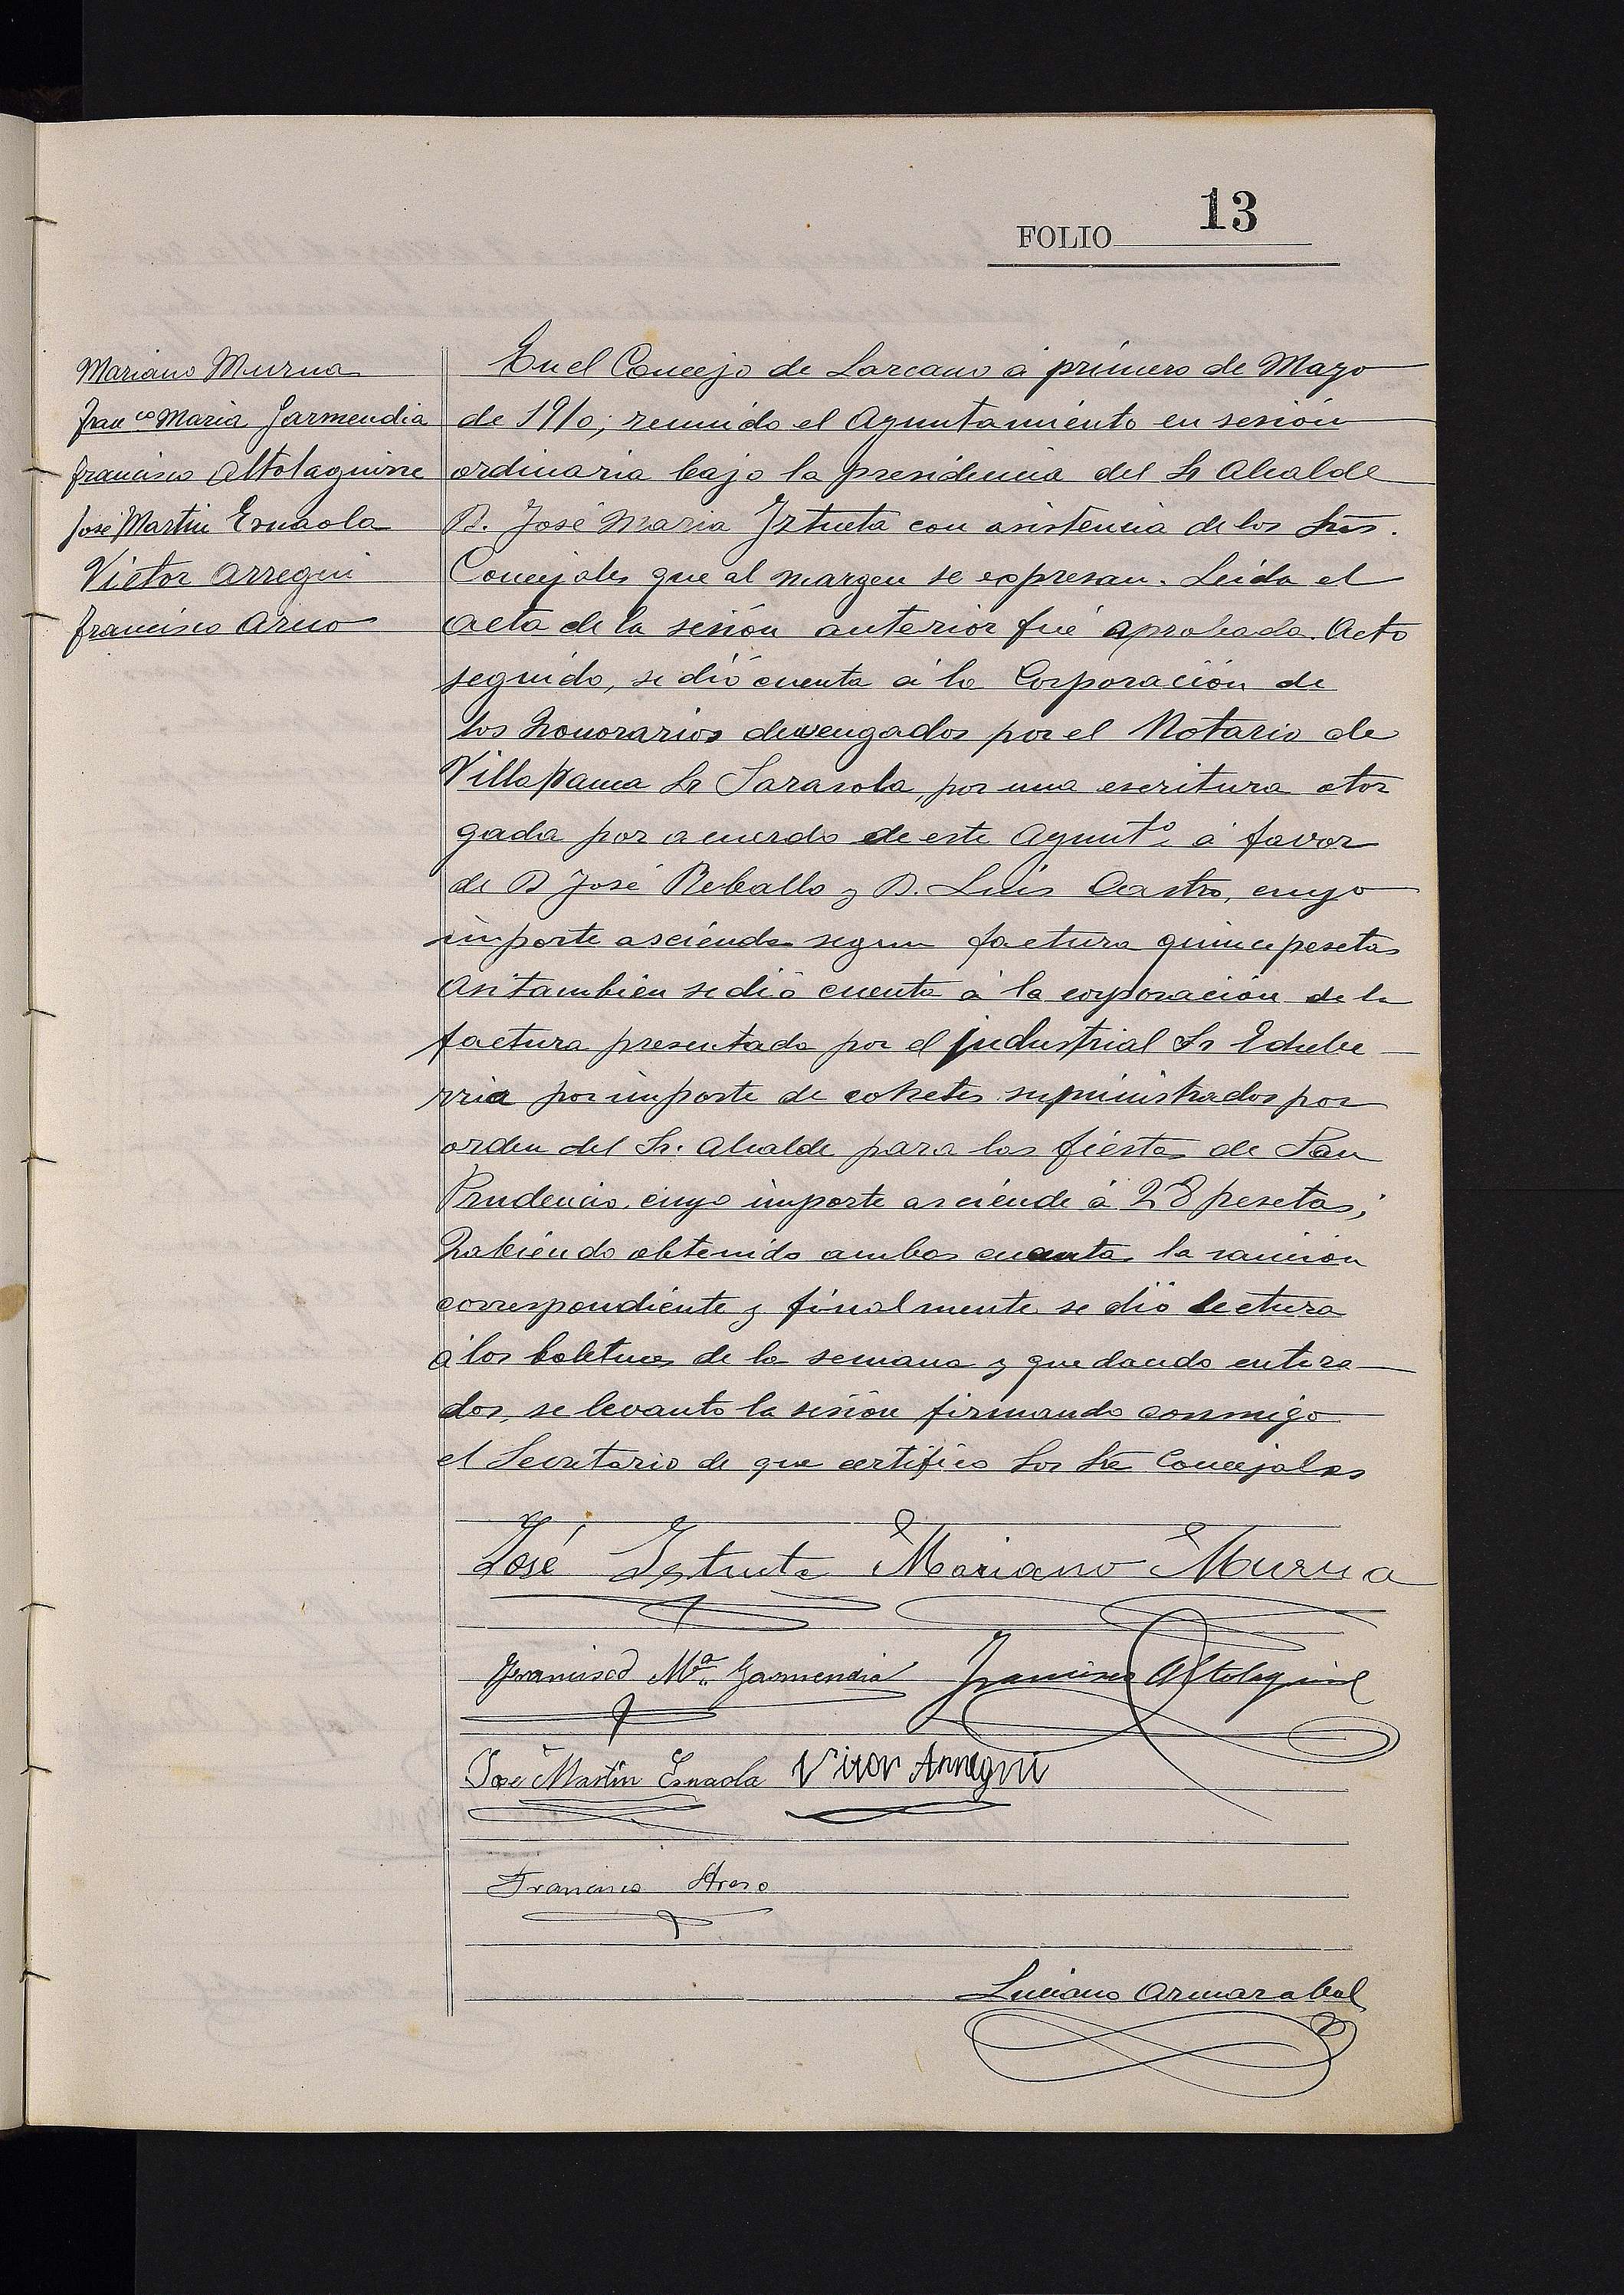 FOLIO 13
Mariano Murua
Franco Maria Garmendia
Francisco Altolaguirre
José Martin Esnaola
Victor Arregui
Francisco Areso
En el Concejo de Lazcano á primero de Mayo
de 1910; reunido el Ayuntamiento en sesión
ordinaria bajo la presidencia del Sr Alcalde
D. José Maria Iztueta con asistencia de los Sres.
Concejales que al margen se expresan. Leida el
acta de la sesión anterior fué aprobada. Acto
seguido, se dió cuenta á la Corporación de
los honorarios devengados por el Notario de
Villafranca Sr Sarasola, por una escritura otor
gada por acuerdo de este Ayuntº á favor
de D José Reballo y D. Luis Castro, cuyo
importe asciende segun factura quince pesetas
Asi tambien se dió cuenta á la corporación de la
factura presentada por el industrial Sr Echebe-
rria por importe de cohetes suministrados por
orden del Sr. Alcalde para las fiestas de San
Prudencio, cuyo importe asciende á 28 pesetas;
habiendo obtenido ambas cuentas la sanción
correspondiente y finalmente se dió lectura
á los boletines de la semana y quedando entera-
dos, se levanto la sesión firmando conmigo
el Secretario de que certifico los Sres Concejales
José Iztueta Mariano Murua
Francisco Mª Garmendia Francisco Altolaguirre
José Martin Esnaola Vitor Arregui
Francisco Areso
Luciano Armarabal